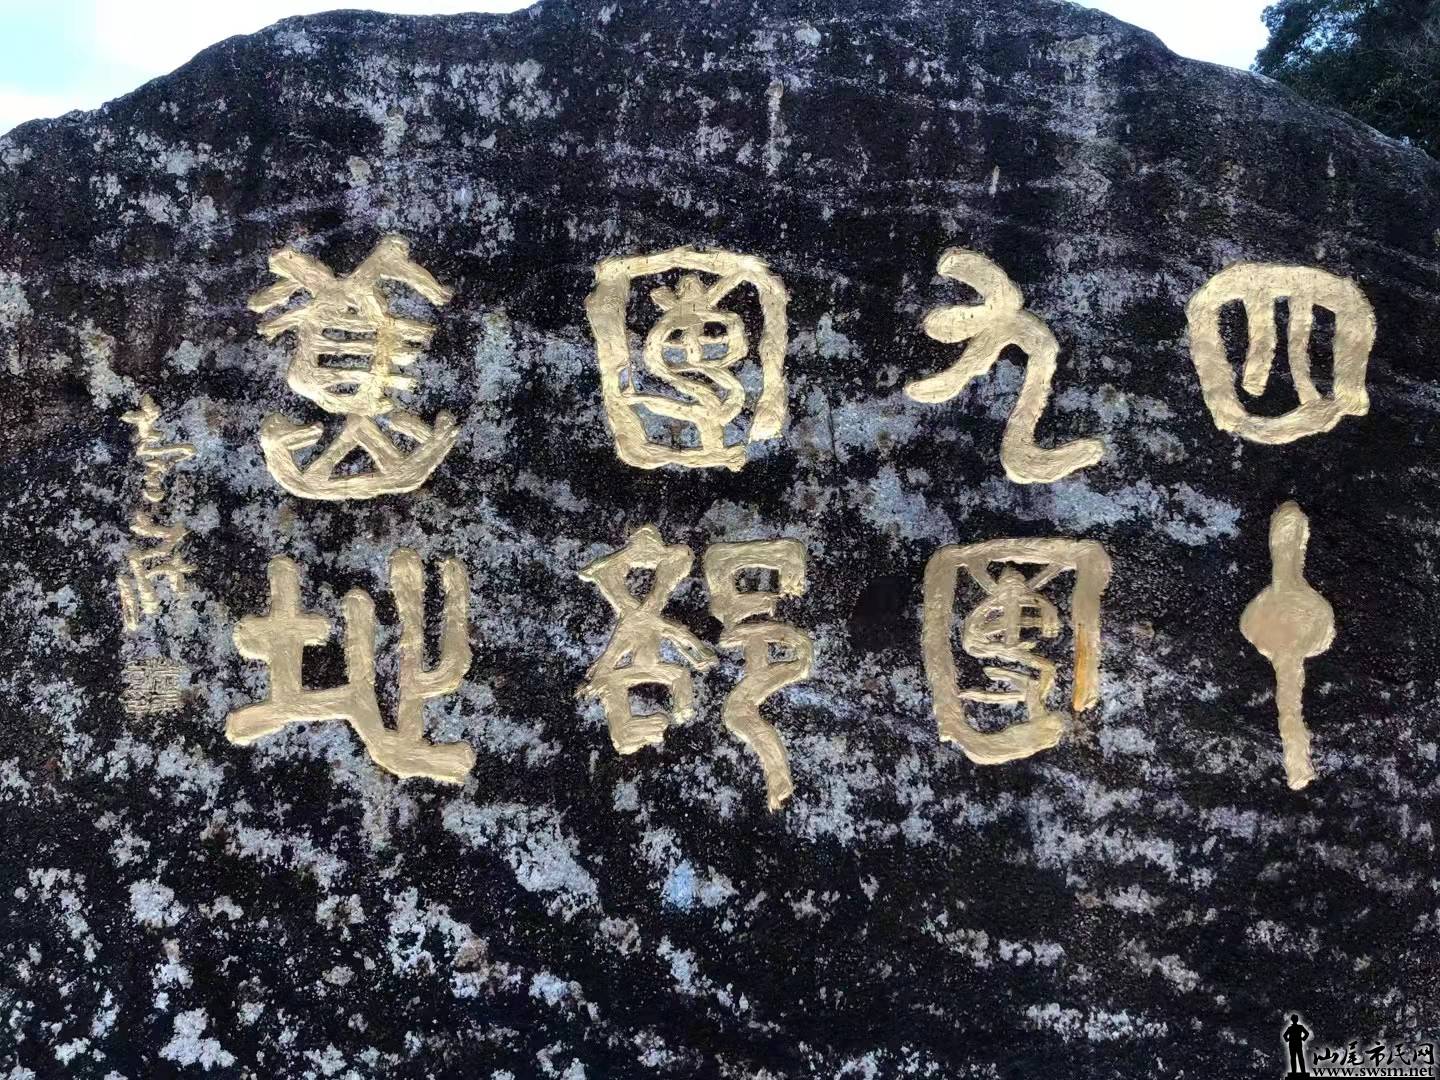 四十
九團
團部
舊址
汕尾市民网
www.swsm.net